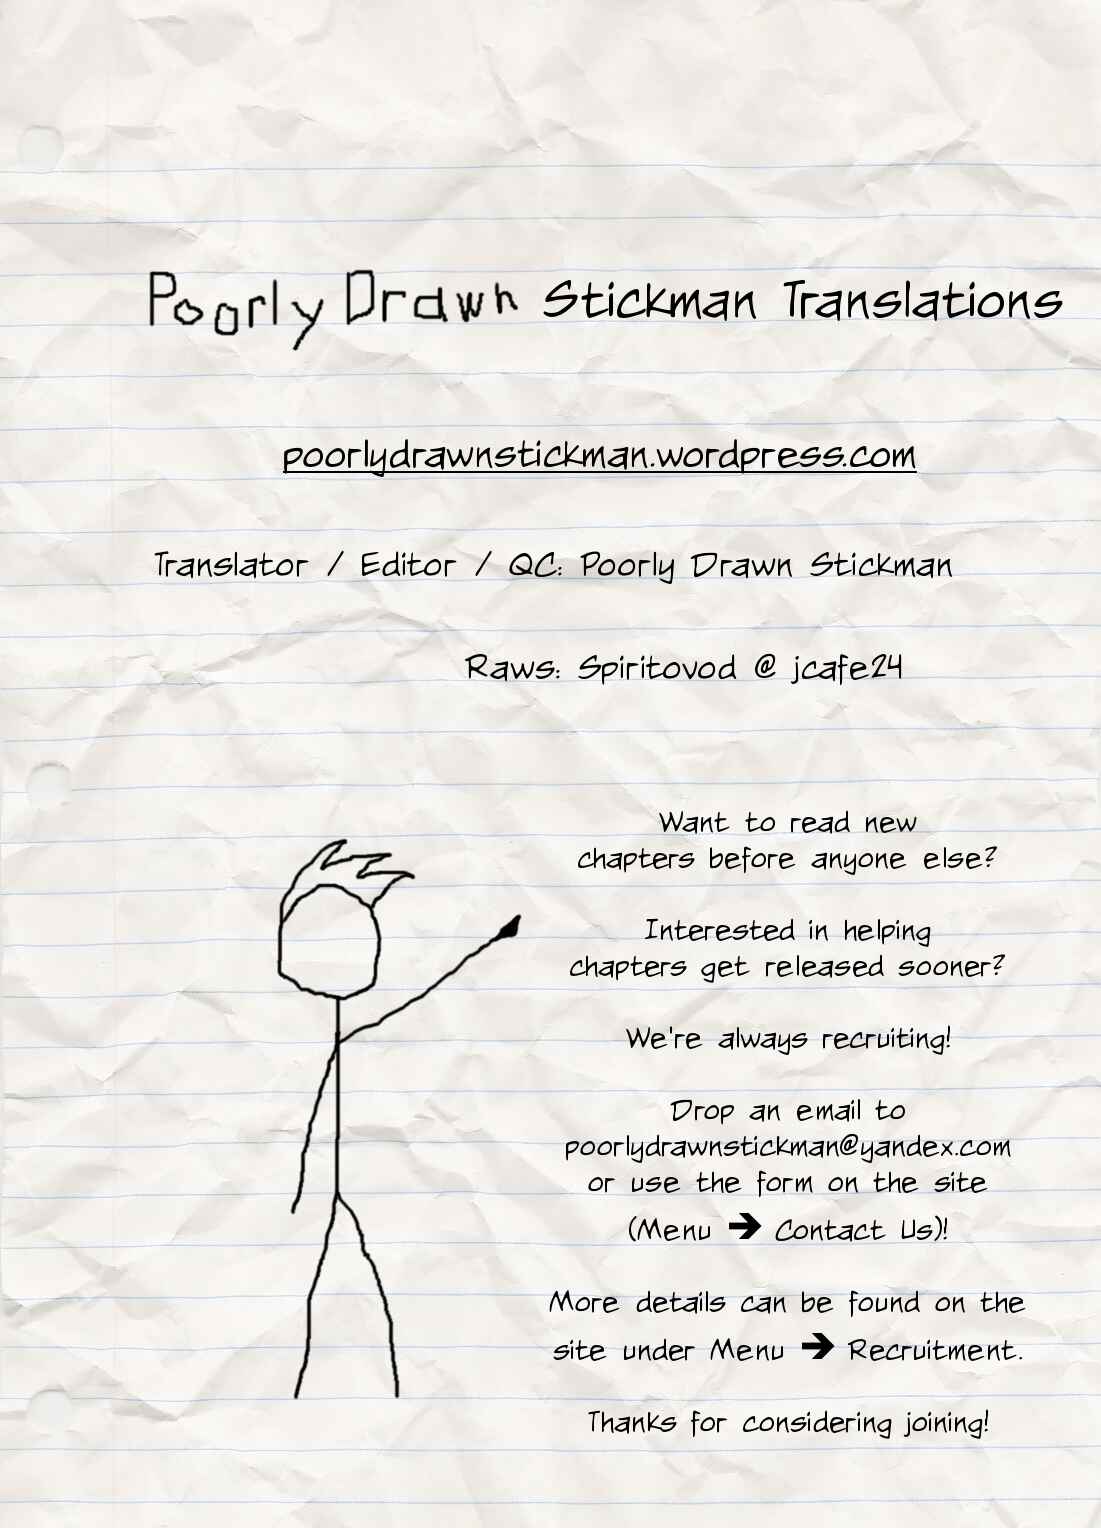 Poorly Drawn Stickman Translations
poorlydrawnstickman.wordpress.com
Translator / Editor / QC: Poorly Drawn Stickman
Raws: Spiritovod @ jcafe24
Want to read new
chapters before anyone else?
Interested in helping
chapters get released sooner?
We're always recruiting!
Drop an email to
poorlydrawnstickman@yandex.com
or use the form on the site
(Menu ➔ Contact Us)!
More details can be found on the
site under Menu ➔ Recruitment.
Thanks for considering joining!